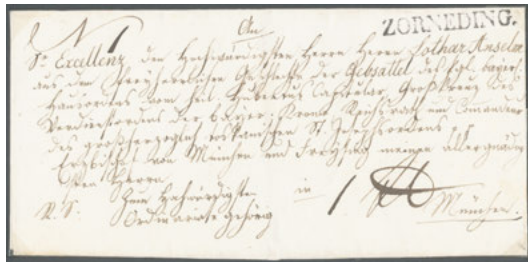 ZORNEDING.
N 1
An
Sr. Excellenz den Hochwürdigsten Herrn Herrn Lothar Anselm
aus dem Freyherrlichen Geschlechte der Gebsattel des kgl. bayer.
Hausordens vom heil. Hubertus Capitular, Großkreuz des
Verdienstordens der bayer. Krone, Reichsrath und Comandeur
des großherzoglich toskanischen St. Josephsordens
Erzbischof von München und Freysing meinen allergnädig
sten Herrn
Zum Hochwürdigsten in
R. S. Ordinariate gehörig 1
München.